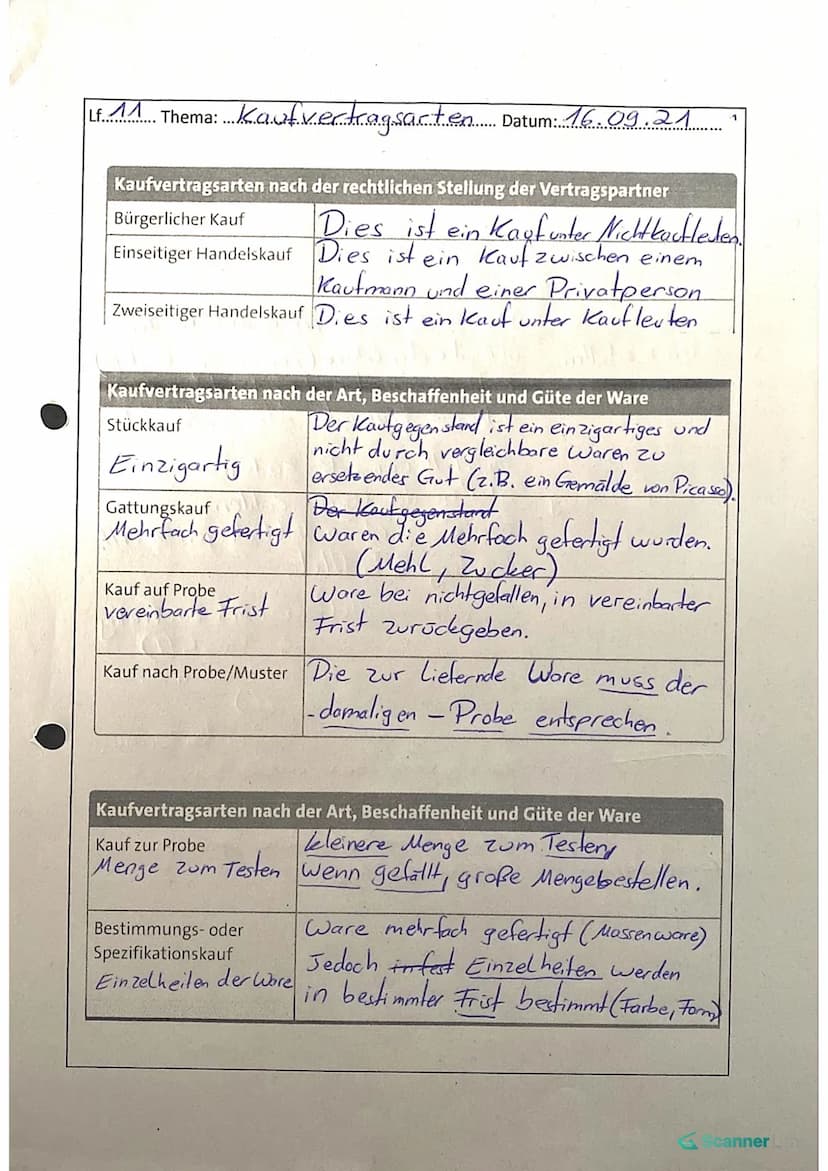 Lf. 11 Thema: Kaufvertragsarten Datum: 16.09.21 1
Kaufvertragsarten nach der rechtlichen Stellung der Vertragspartner
Bürgerlicher Kauf Dies ist ein Kauf unter Nichtkaufleuten.
Einseitiger Handelskauf Dies ist ein Kauf zwischen einem
Kaufmann und einer Privatperson
Zweiseitiger Handelskauf Dies ist ein Kauf unter Kaufleuten
Kaufvertragsarten nach der Art, Beschaffenheit und Güte der Ware
Stückkauf Der Kaufgegenstand ist ein einzigartiges und
nicht durch vergleichbare Waren zu
Einzigartig ersetzendes Gut (z.B. ein Gemälde von Picasso).
Gattungskauf Der Kaufgegenstand
Mehrfach gefertigt Waren die Mehrfach gefertigt wurden.
(Mehl, Zucker)
Kauf auf Probe Ware bei nichtgefallen, in vereinbarter
vereinbarte Frist Frist zurückgeben.
Kauf nach Probe/Muster Die zur Liefernde Ware muss der
- damaligen - Probe entsprechen.
Kaufvertragsarten nach der Art, Beschaffenheit und Güte der Ware
Kauf zur Probe kleinere Menge zum Testen,
Menge zum Testen Wenn gefällt, große Menge bestellen.
Bestimmungs- oder Ware mehrfach gefertigt (Massenware)
Spezifikationskauf Jedoch Einzelheiten werden
Einzelheiten der Ware in bestimmter Frist bestimmt (Farbe, Form)
Scanner